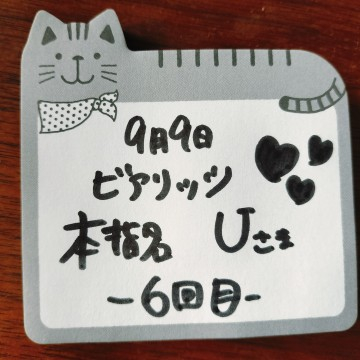 9月9日
ビアリッツ
本指名 Uさま
-6回目-